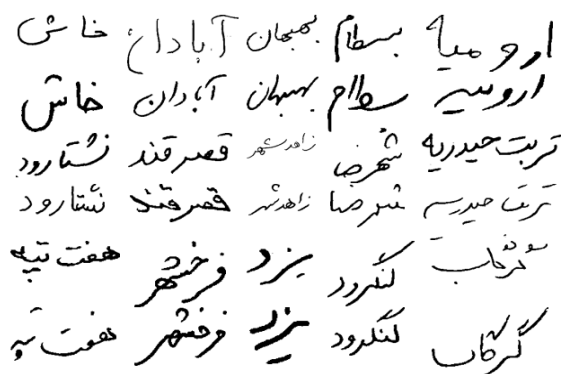 ارومیه بسطام بهبهان آبادان خاش
ارومیه بسطام بهبهان آبادان خاش
تربت حیدریه شهرضا زاهدشهر قصرقند نشتارود
تربت حیدریه شهرضا زاهدشهر قصرقند نشتارود
لنگرود یزد فرخشهر هفت تپه
لنگرود یزد فرخشهر هفت تپه